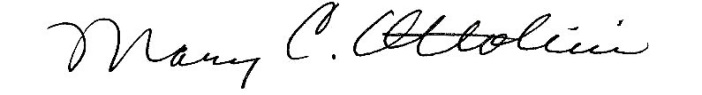 Mary C. Ottolini